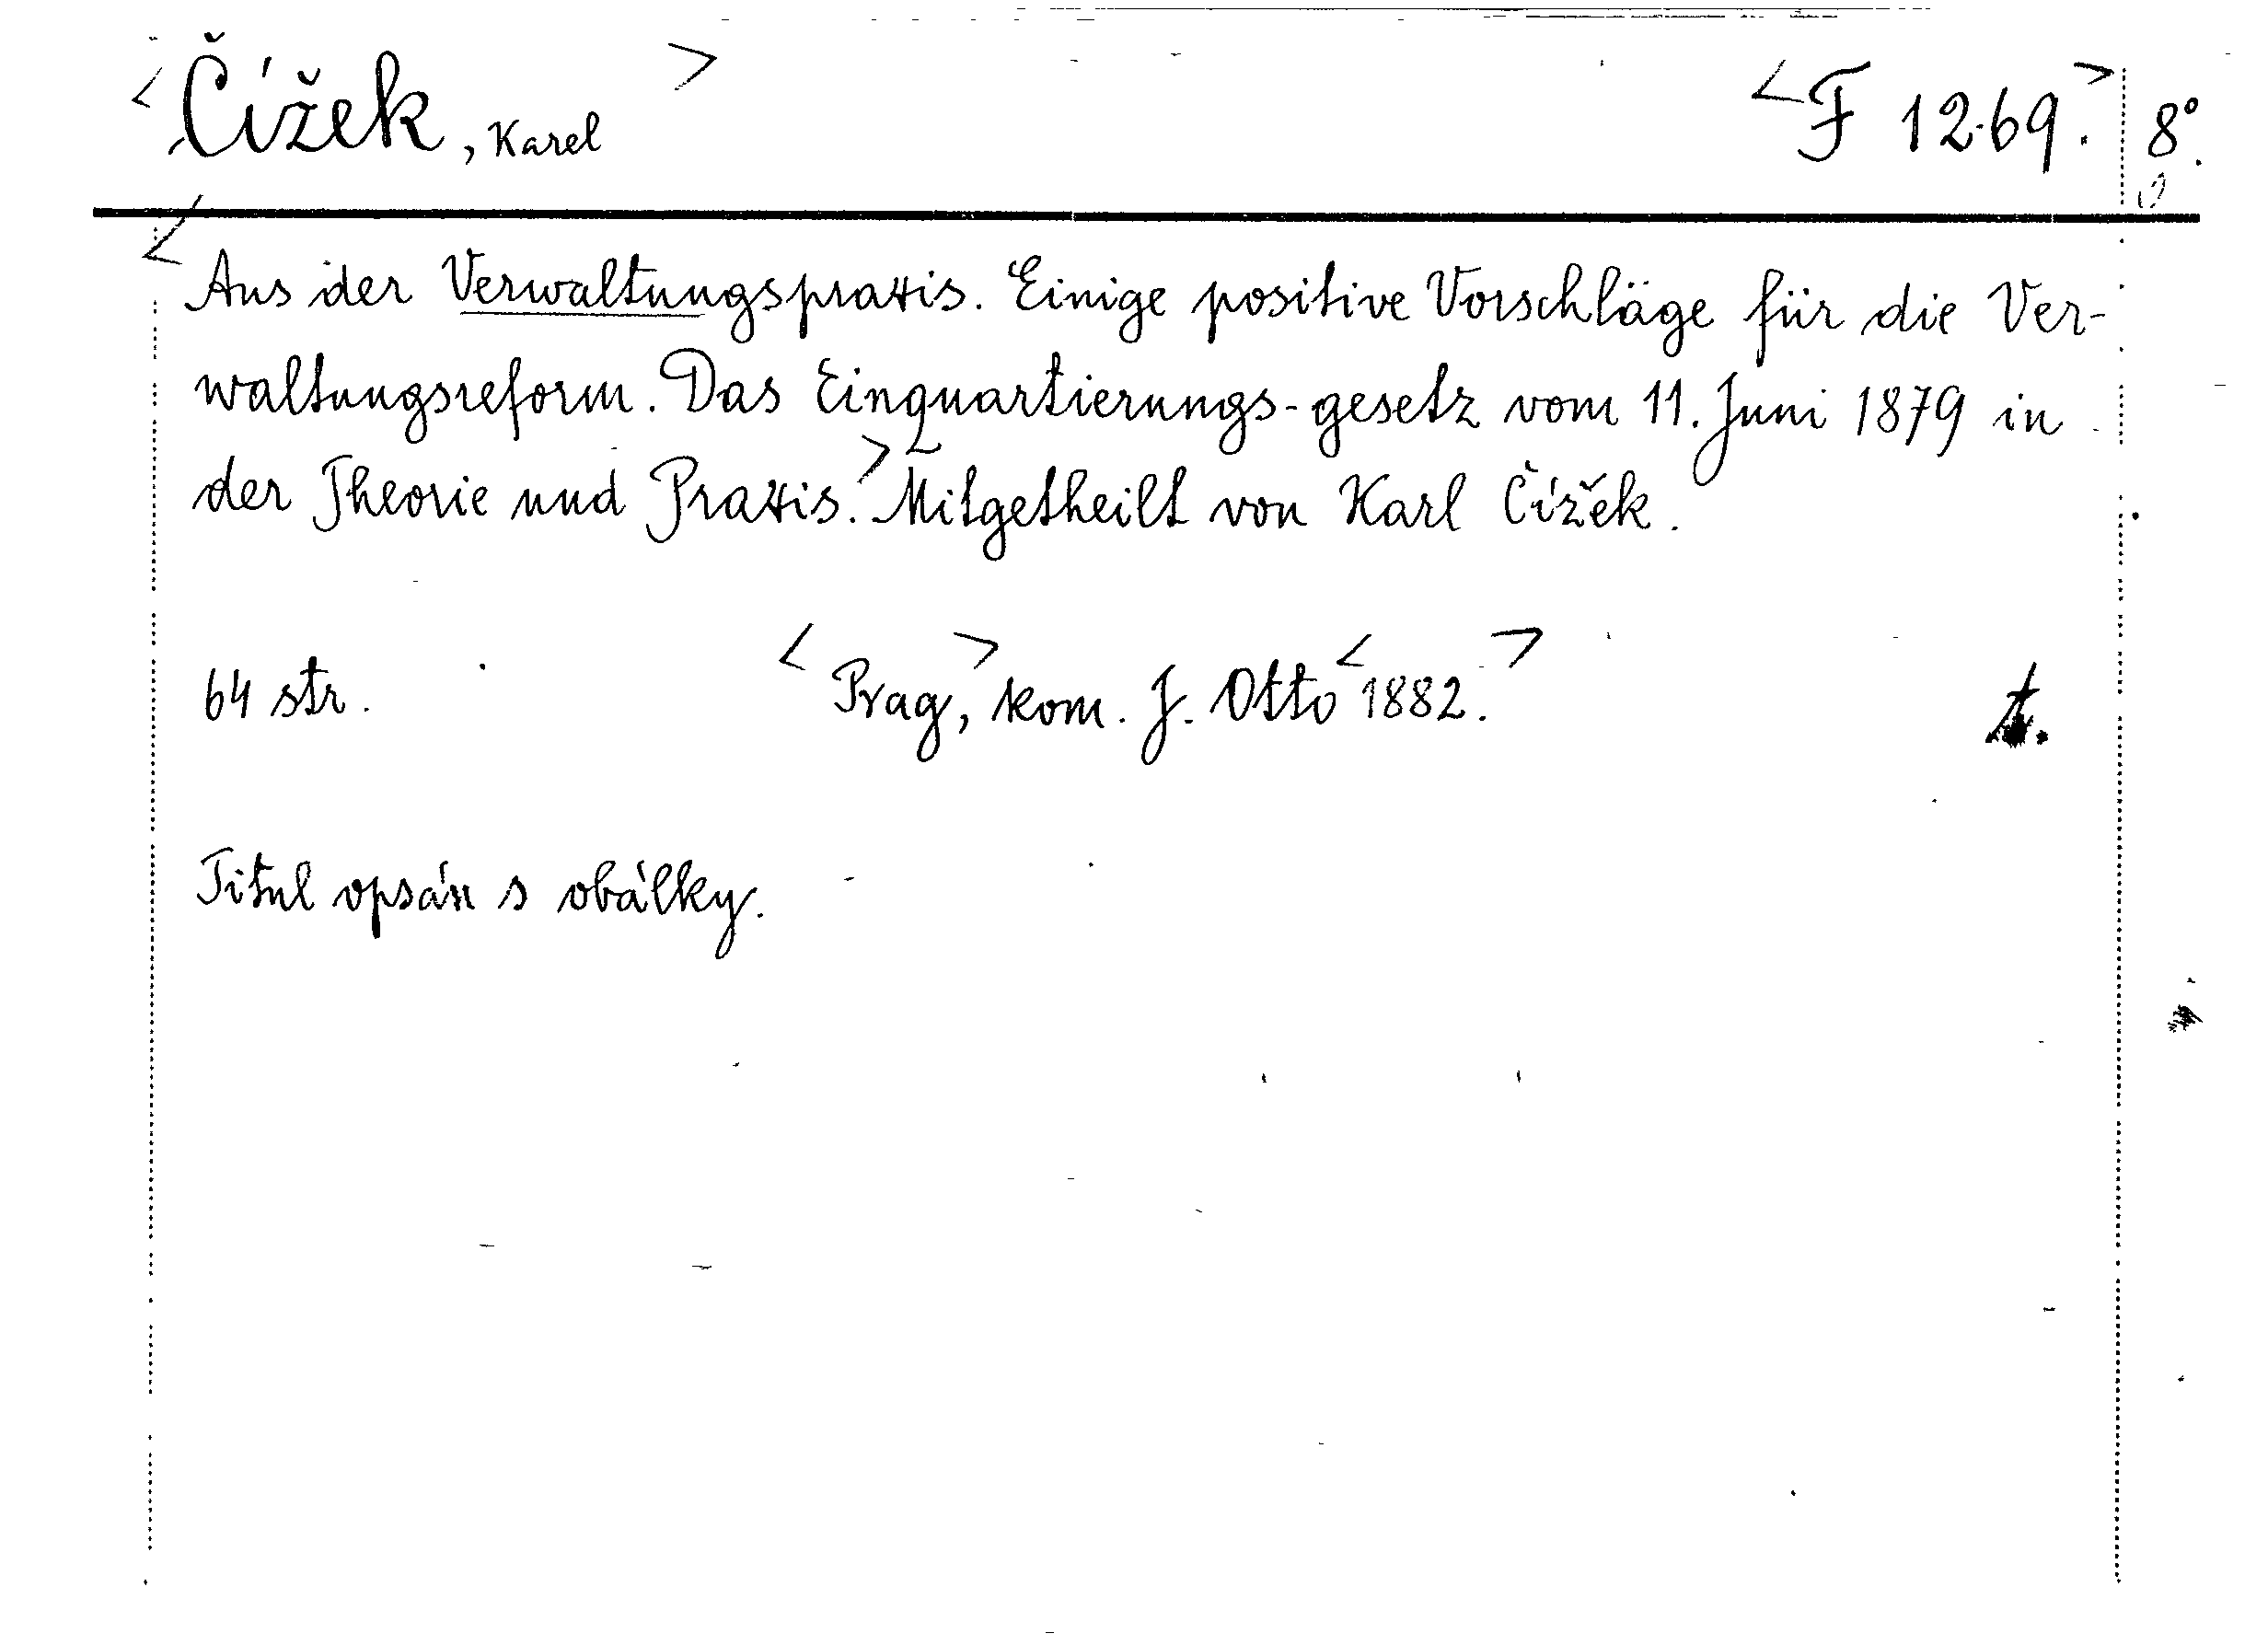 < Čížek, Karel > < F 1269. > 8°.
< Aus der Verwaltungspraxis. Einige positive Vorschläge für die Ver-
waltungsreform. Das Einquartierungs-gesetz vom 11. Juni 1879 in
der Theorie und Praxis. > Mitgetheilt von Karl Čížek.
64 str. < Prag, > kom. J. Otto < 1882. > t.
Titul opsán s obálky.